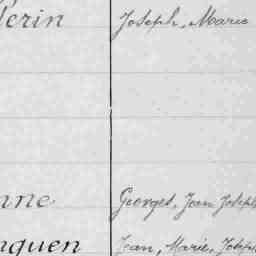 erin Joseph, Marie
nne Georges, Jean Joseph
nguen Jean, Marie, Joseph